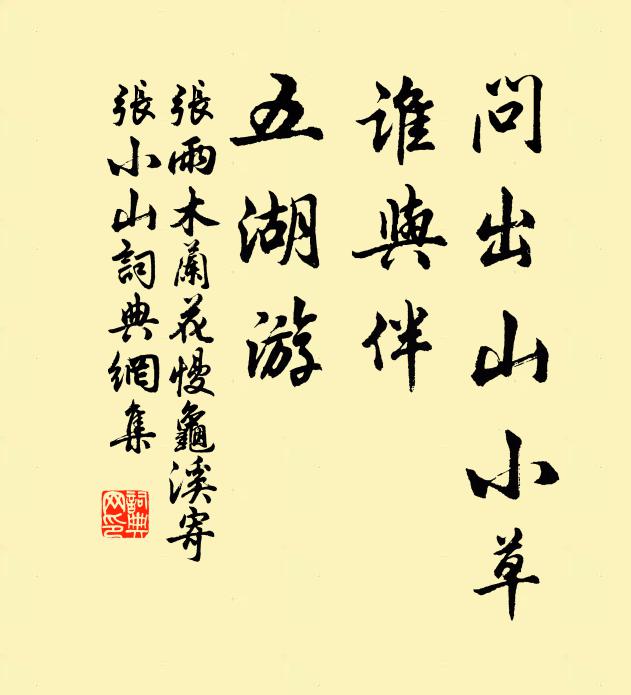 問出山小草
誰與伴
五湖游
張雨木蘭花慢龜溪寄
張小山詞典網集
詞典
网印